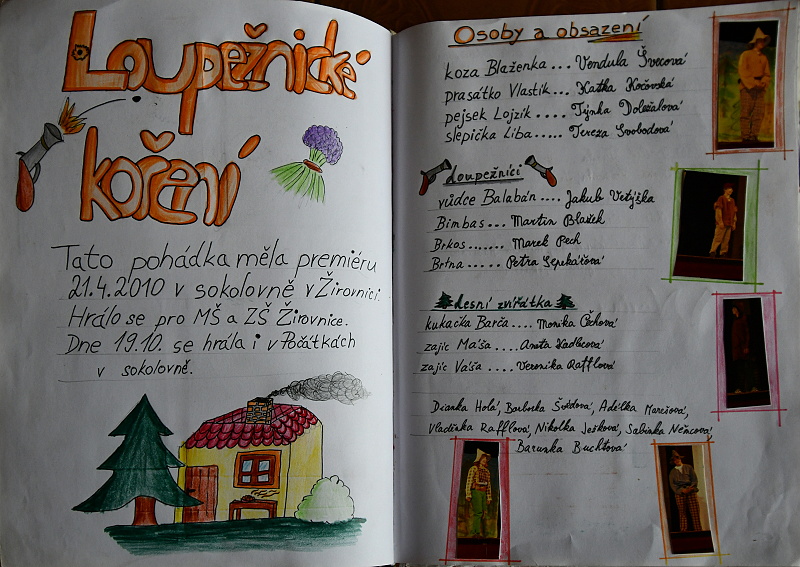 Loupežnické
koření
Tato pohádka měla premiéru
21.4.2010 v sokolovně v Žirovnici.
Hrálo se pro MŠ a ZŠ Žirovnice.
Dne 19.10. se hrála i v Počátkách
v sokolovně.
Osoby a obsazení
koza Blaženka... Vendula Švecová
prasátko Vlastík... Katka Kočovská
pejsek Lojzík.... Týnka Doležalová
slepička Liba..... Tereza Svobodová
Loupežníci
vůdce Balabán.... Jakub
Bimbas... Martin Blažek
Brkos....... Marek Pech
Brtna..... Petra
lesní zvířátka
kukačka Barča.... Monika Čechová
zajíc Máša .... Aneta Kadlecová
zajíc Váša .... Veronika Rafflová
Dianka Holá, Barborka Švédová, Adélka Marešová,
Vladěnka Rafflová, Nikolka Ješková, Sabinka Němcová,
Barunka Buchtová